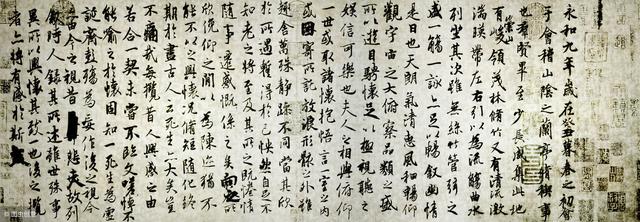 永和九年歲在癸丑暮春之初
于會稽山陰之蘭亭脩稧事
也羣賢畢至少長咸集此地
有崇山峻領茂林脩竹又有清流激
湍暎帶左右引以為流觴曲水
列坐其次雖無絲竹管弦之
盛一觴一詠亦足以暢敘幽情
是日也天朗氣清惠風和暢仰
觀宇宙之大俯察品類之盛
所以遊目騁懷足以極視聽之
娛信可樂也夫人之相與俯仰
一世或取諸懷抱悟言一室之內
或因寄所託放浪形骸之外雖
趣舍萬殊靜躁不同當其欣
於所遇蹔得於己怏然自足不
知老之將至及其所之既惓情
隨事遷感慨係之矣向之所
欣俛仰之閒以為陳迹猶不
能不以之興懷況脩短隨化終
期於盡古人云死生亦大矣豈
不痛哉每攬昔人興感之由
若合一契未嘗不臨文嗟悼不
能喻之於懷固知一死生為虛
誕齊彭殤為妄作後之視今
亦由今之視昔悲夫故列
敘時人錄其所述雖世殊事
異所以興懷其致一也後之攬
者亦將有感於斯文
图虫创意